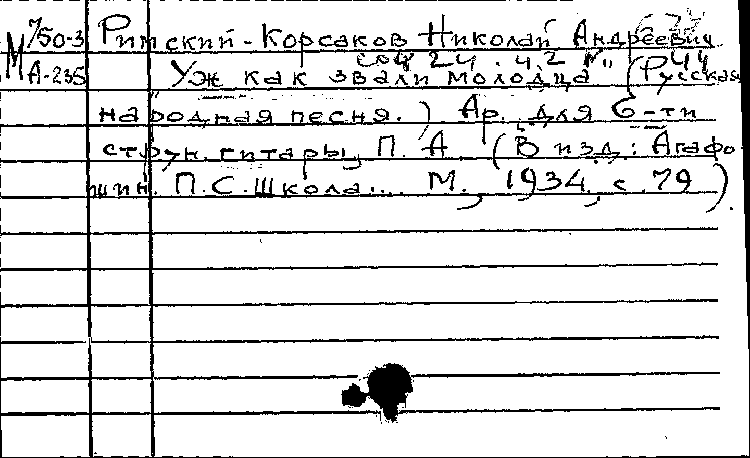 М 750-3
А-235
Римский-Корсаков Николай Андреевич
соч 24. ч. 2 № 44
Уж как звали молодца (Русская
народная песня.) Ар. для 6-ти
струн. гитары, П. А (В изд.: Агафо
шин. П. С. Школа... М., 1934, с. 79).